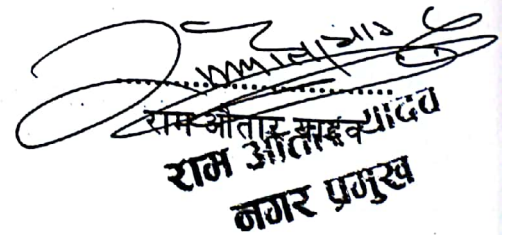 राम औतार यादव
राम औतार यादव
नगर प्रमुख